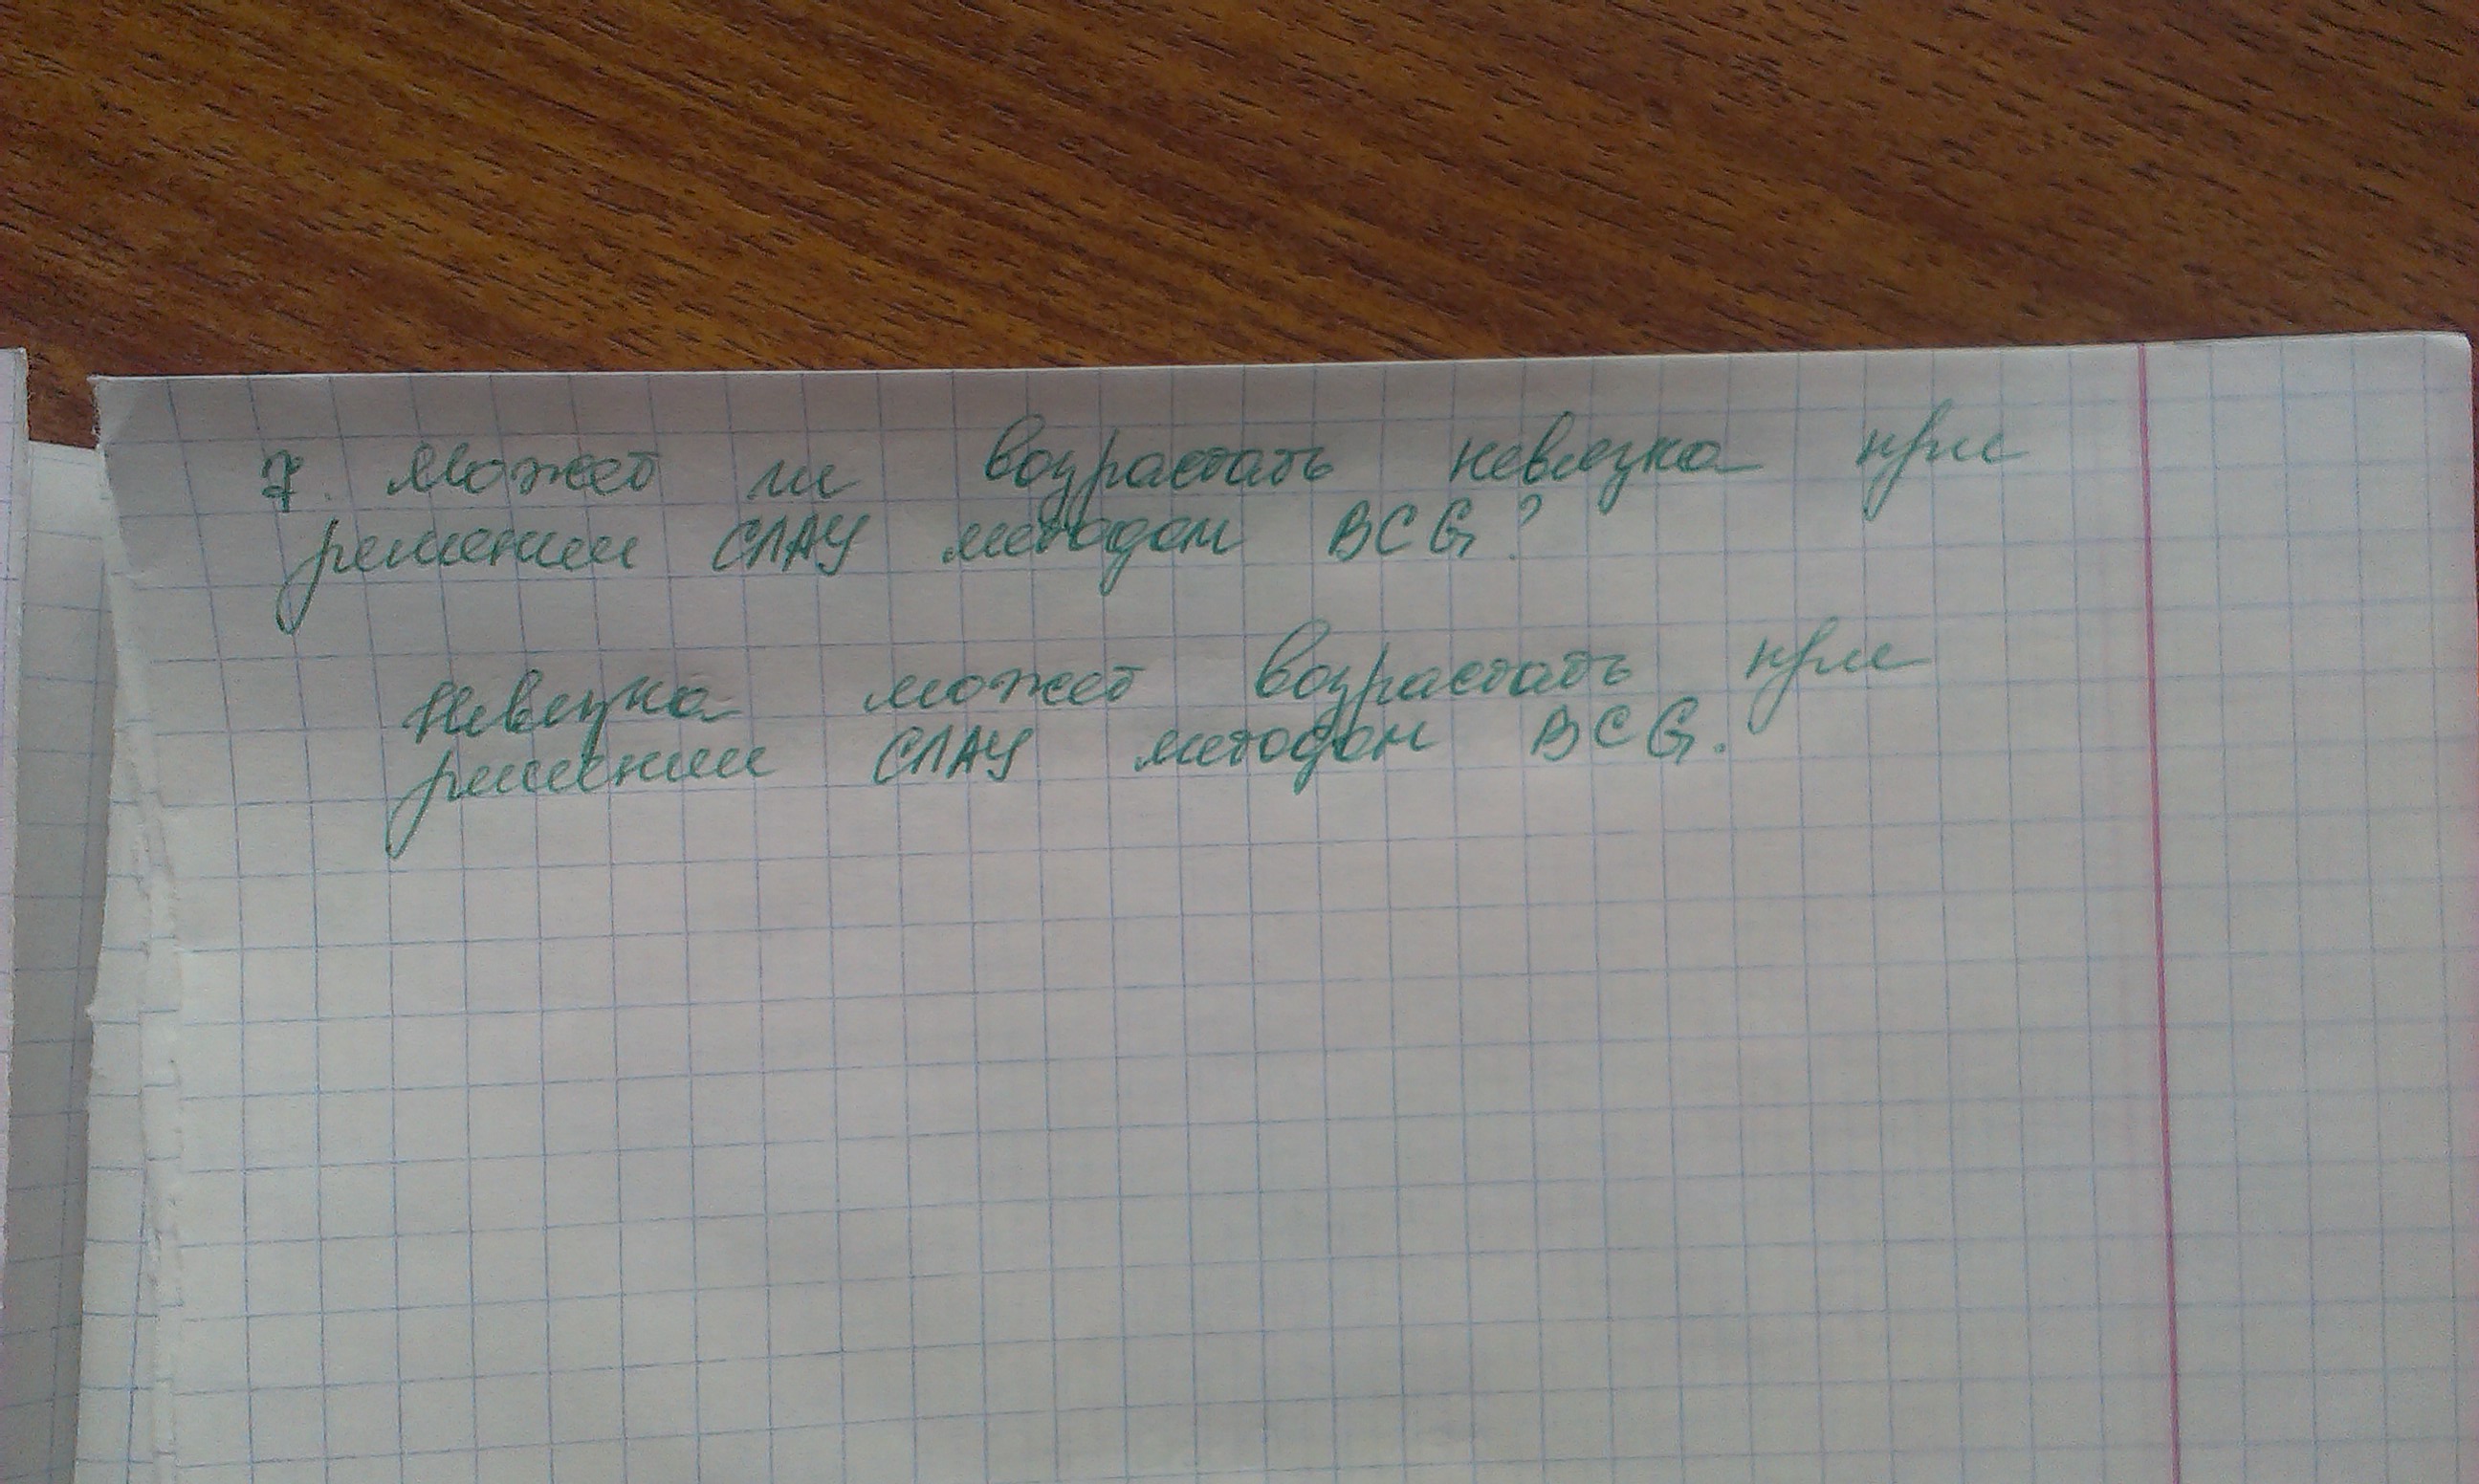 7. Может ли возрастать невязка при
решении СЛАУ методом BCG?
Невязка может возрастать при
решении СЛАУ методом BCG.